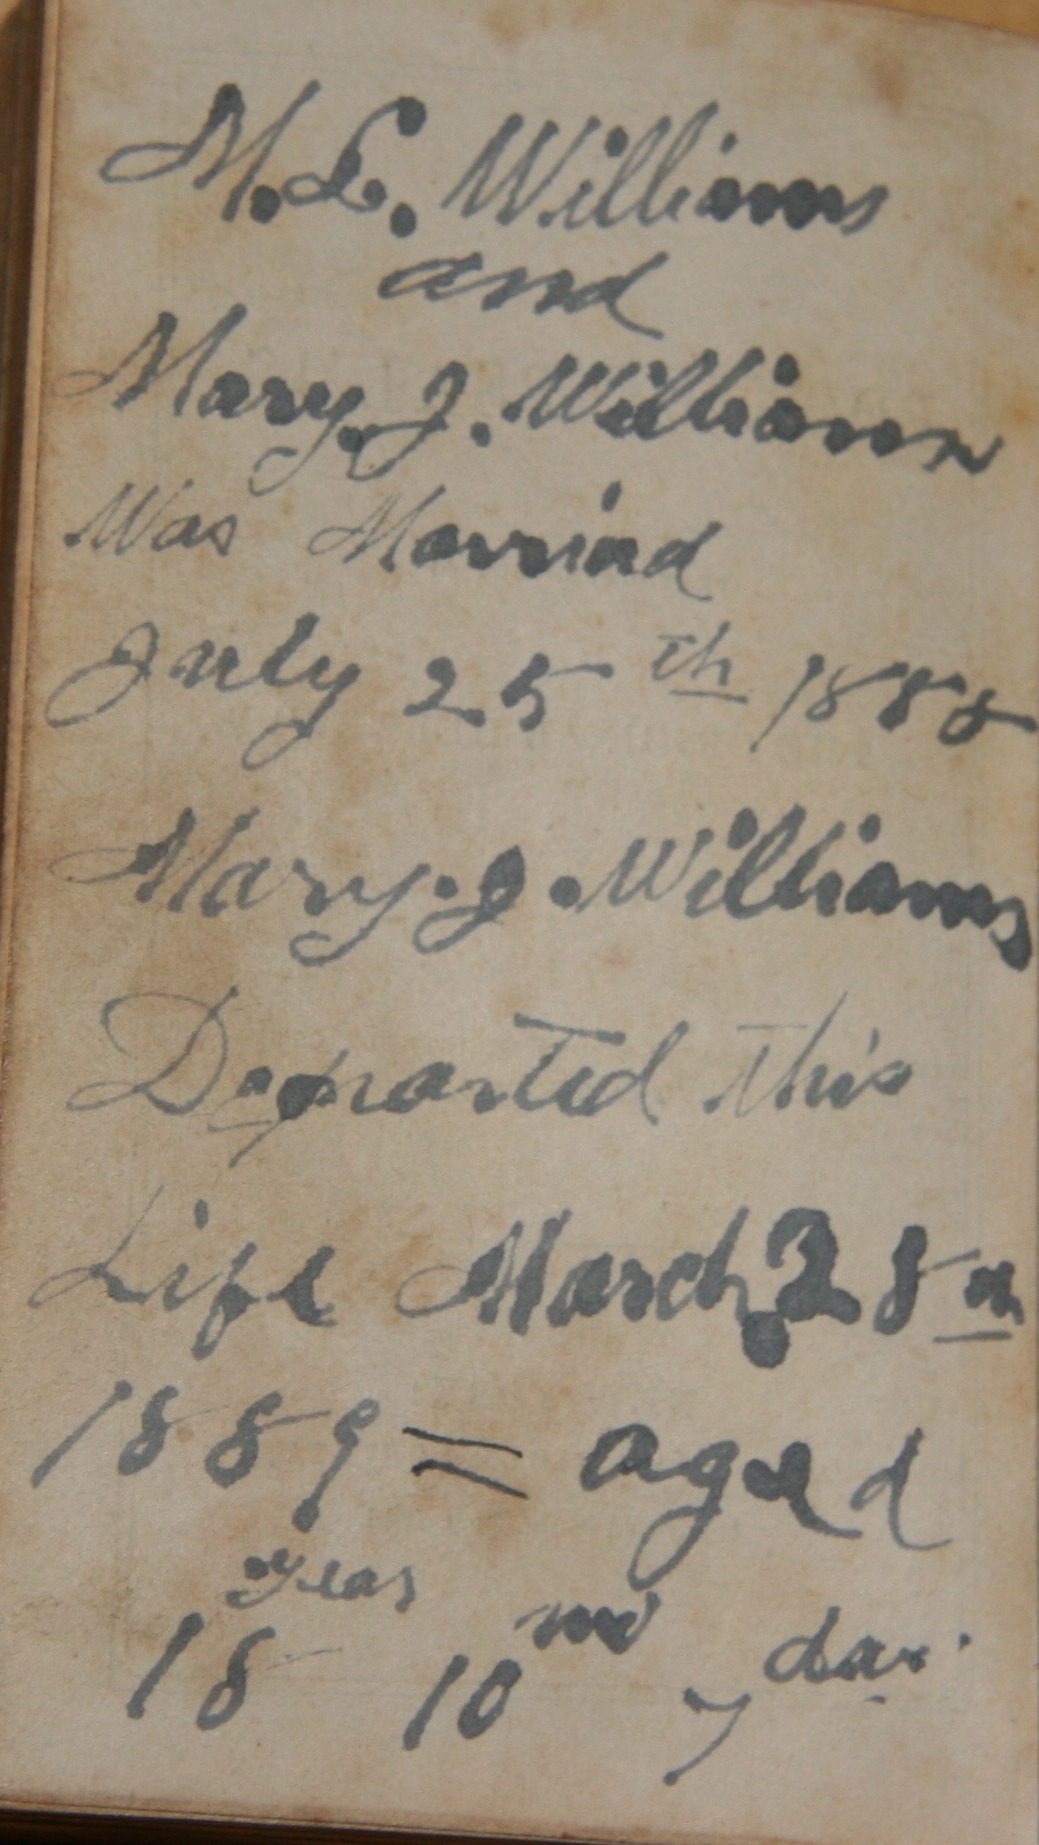 M. L. Williams
and
Mary. J. Williams
Was Married
July 25th 1888
Mary. J. Williams
Departed this
Life March, 28th
1889 = aged
18 years 10 mo 7 days